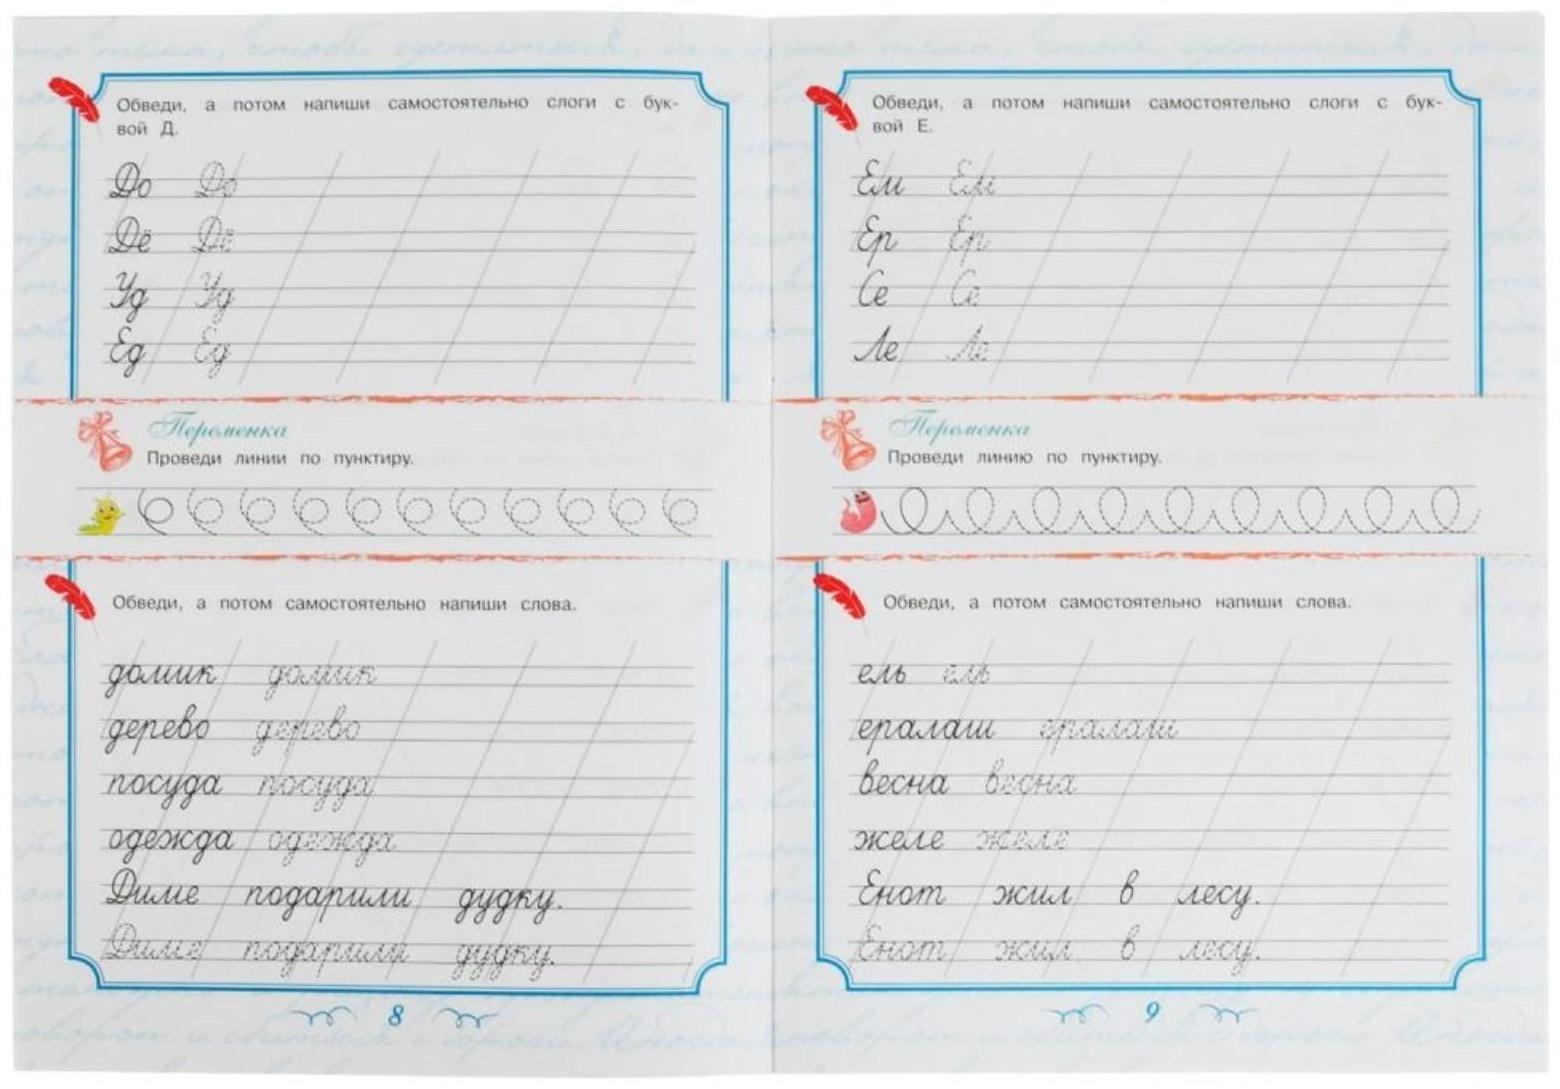 Обведи, а потом напиши самостоятельно слоги с бук-
вой Д.
До До
Дё Дё
Уд Уд
Ед Ед
Переменка
Проведи линии по пунктиру.
Обведи, а потом самостоятельно напиши слова.
домик домик
дерево дерево
посуда посуда
одежда одежда
Диме подарили дудку.
Диме подарили дудку.
8
Обведи, а потом напиши самостоятельно слоги с бук-
вой Е.
Ем Ем
Ер Ер
Се Се
Ле Ле
Переменка
Проведи линию по пунктиру.
Обведи, а потом самостоятельно напиши слова.
ель ель
ералаш ералаш
весна весна
желе желе
Енот жил в лесу.
Енот жил в лесу.
9